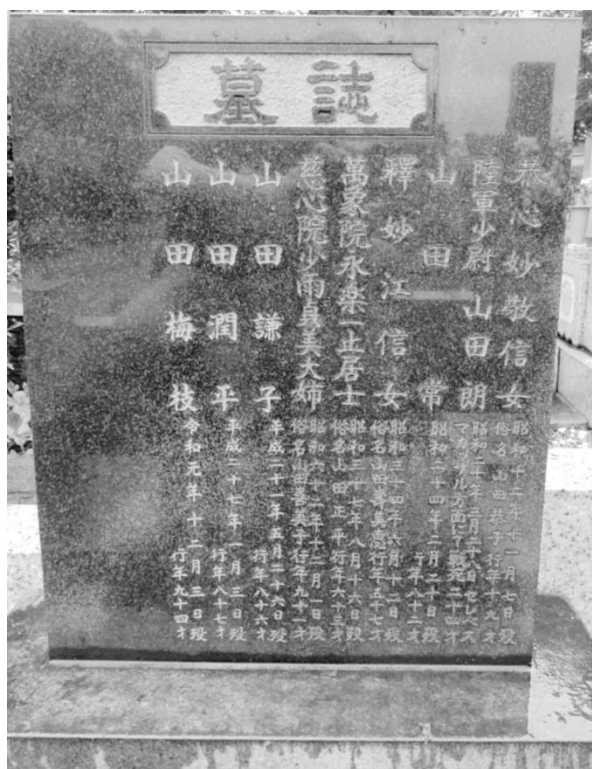 墓誌
恭心妙敬信女
昭和十二年十一月七日歿
俗名山田恭子 行年十九才
陸軍少尉 山田朗
昭和二十年三月二十八日セレベス
マカッサル方面にて戦死二十四才
山田常
昭和二十四年二月二十日歿
行年八十二才
釋妙江信女
昭和三十四年六月十二日歿
俗名山田喜美恵行年五十七才
萬象院永楽一止居士
昭和三十七年八月十六日歿
俗名山田正年行年六十三才
慈心院少雨真美大姉
昭和六十一年十二月一日歿
俗名山田喜美子行年九十一才
山田謙子
平成二十一年五月二十六日歿
行年八十六才
山田潤平
平成二十七年一月三日歿
行年八十七才
山田梅枝
令和元年十二月三日歿
行年九十四才